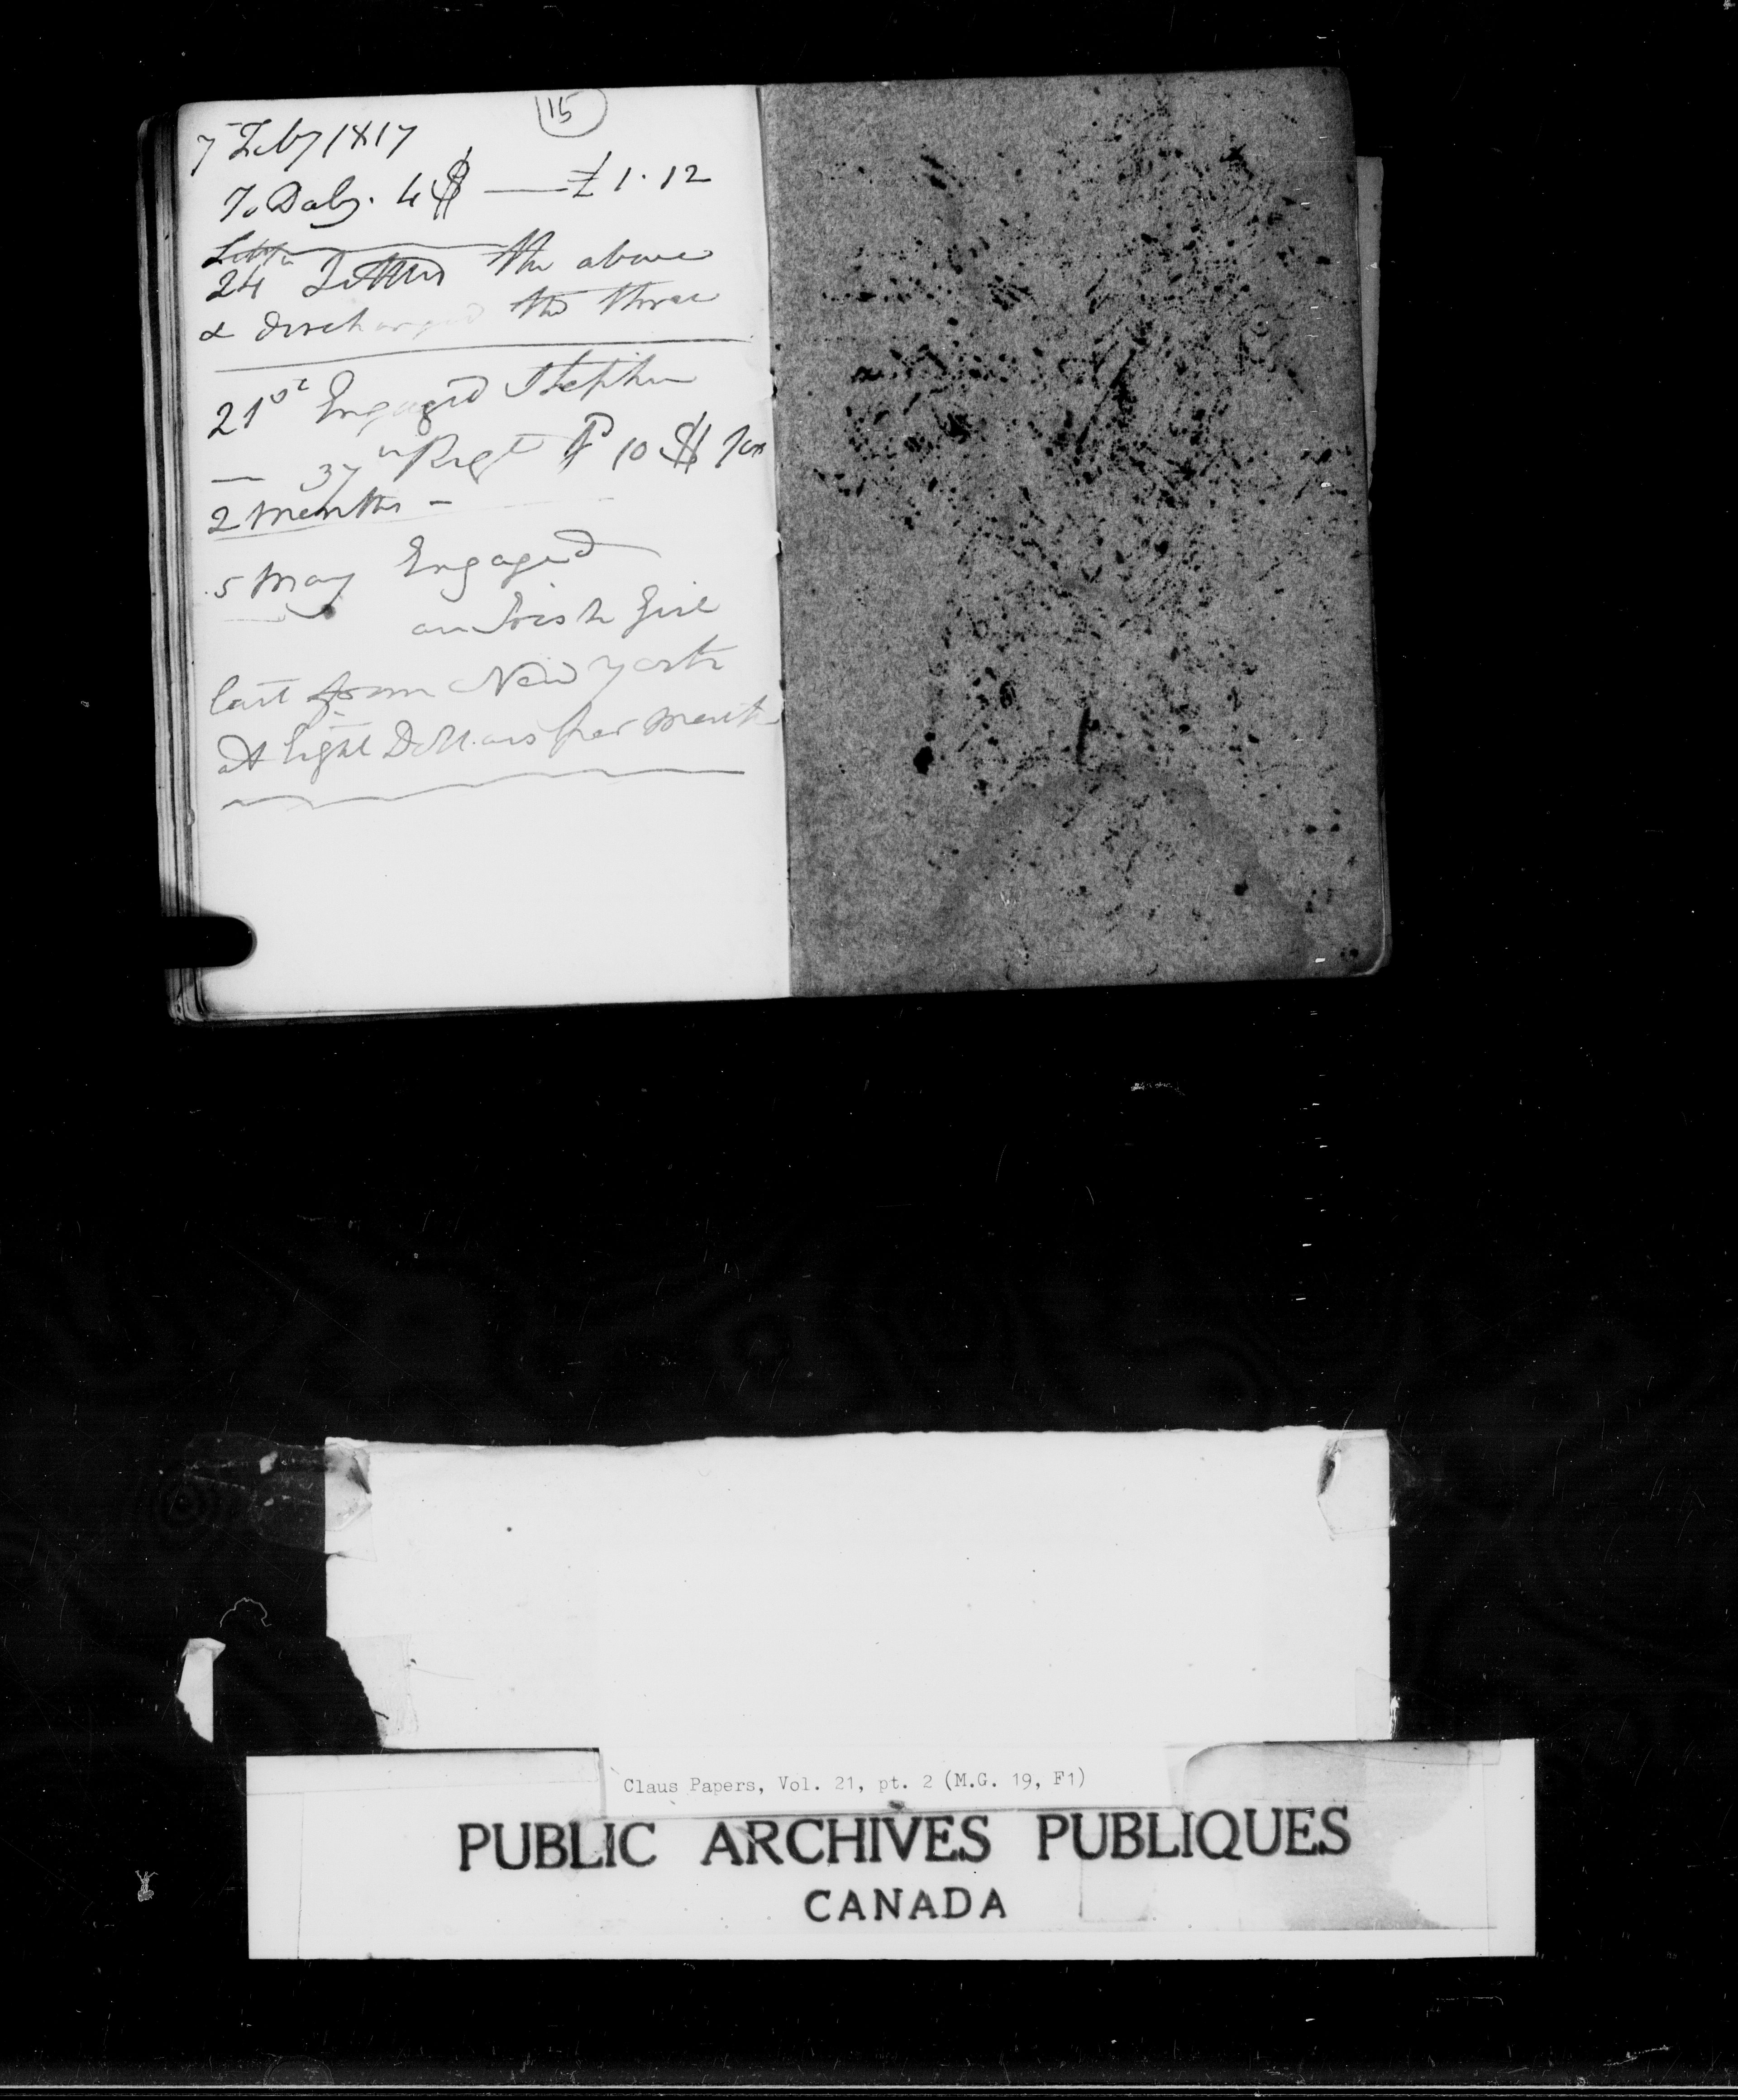 115
7 Feby 1817
To Daly. 4$ — £1.12
24 Settled the above
& discharged the three
21st Engaged Stephen
— 37th Regt Pd 10 $ for
2 Months —
5 May Engaged
an Irish Girl
last from New York
at Eight Dollars per Month
Claus Papers, Vol. 21, pt. 2 (M.G. 19, F1)
PUBLIC ARCHIVES PUBLIQUES
CANADA